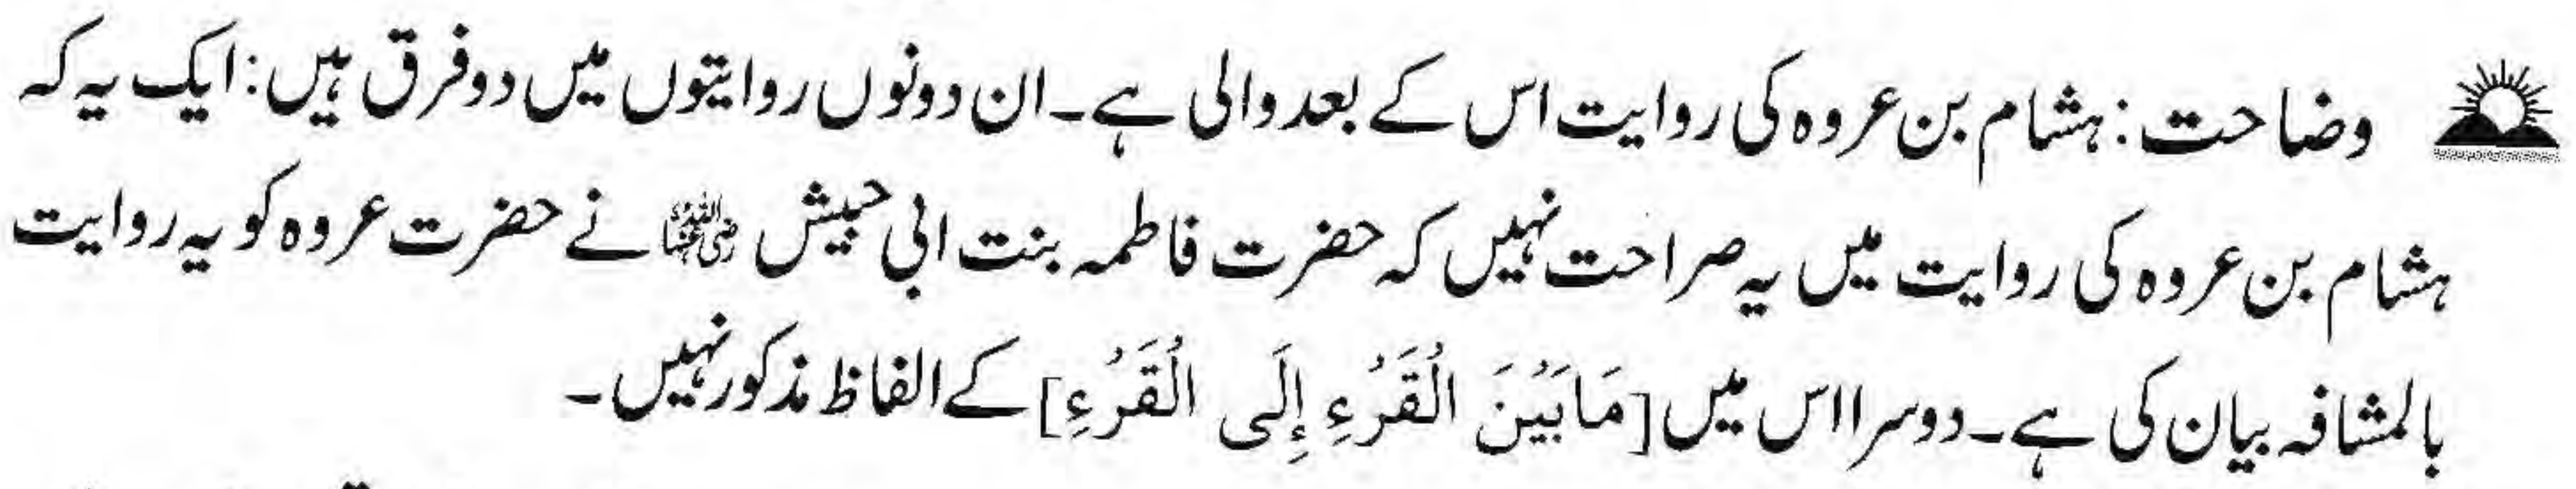 وضاحت: ہشام بن عروہ کی روایت اس کے بعد والی ہے۔ ان دونوں روایتوں میں دو فرق ہیں: ایک یہ کہ
ہشام بن عروہ کی روایت میں یہ صراحت نہیں کہ حضرت فاطمہ بنت ابی حبیش رضی اللہ عنہا نے حضرت عروہ کو یہ روایت
بالمشافہ بیان کی ہے۔ دوسرا اس میں [مَابَیْنَ الْقَرْءِ إِلَی الْقَرْءِ] کے الفاظ مذکور نہیں۔